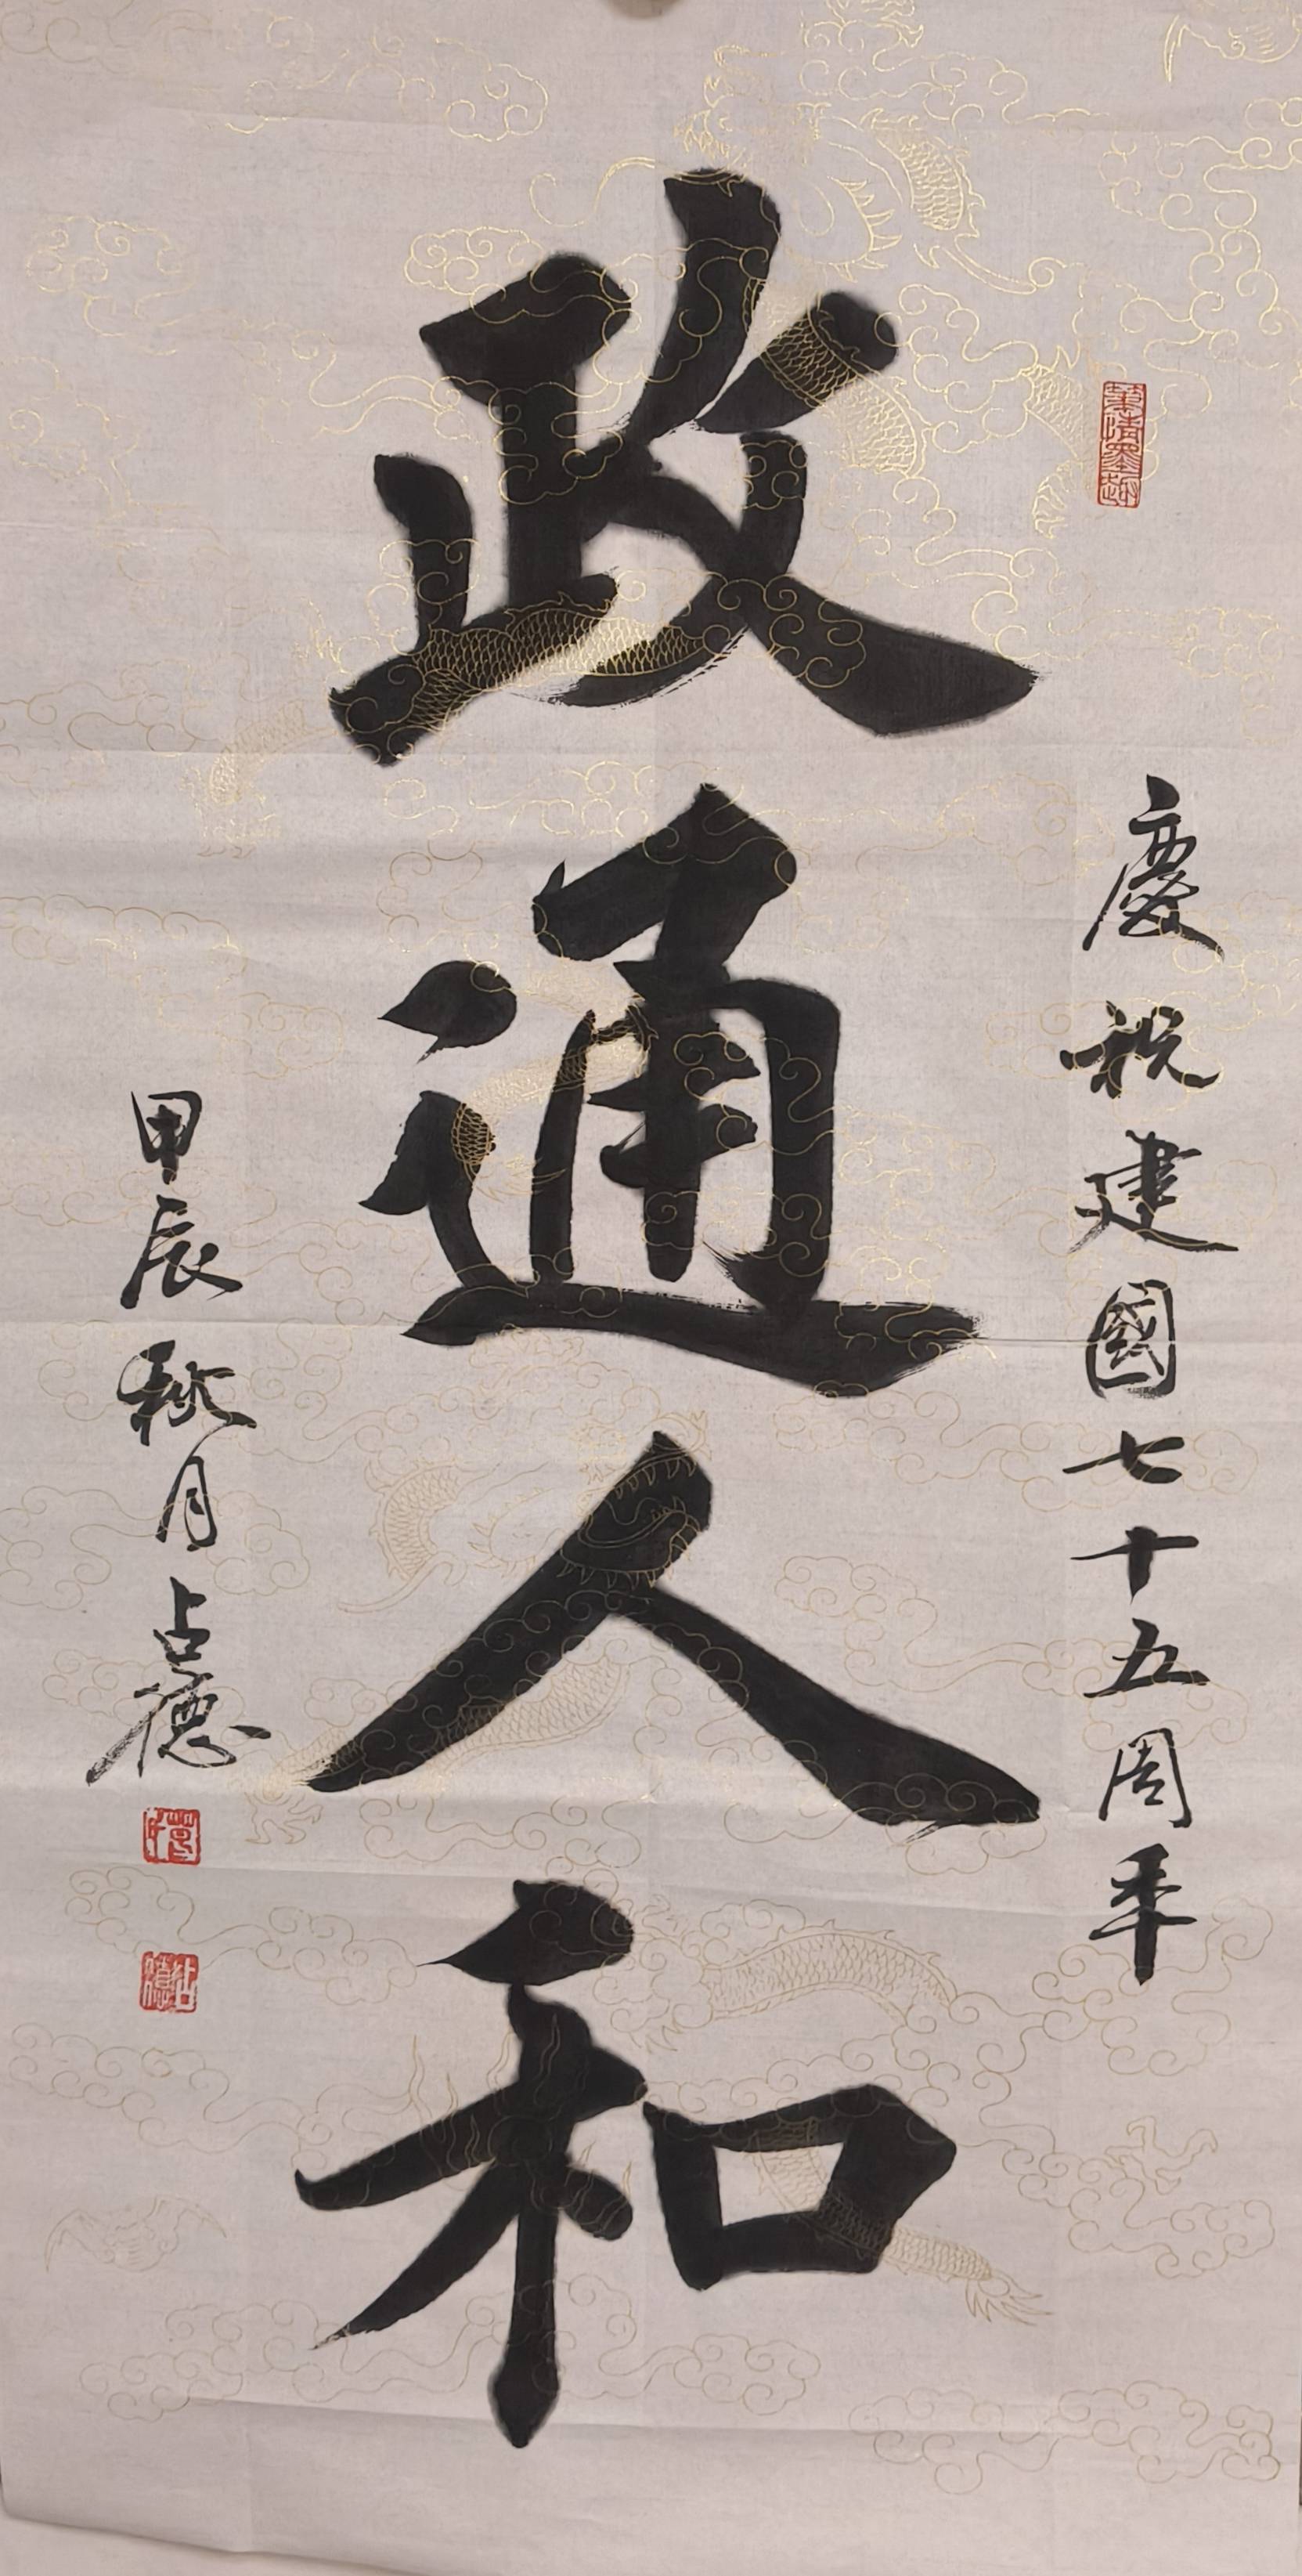 慶祝建國七十五周年
政通人和
甲辰秋月占德